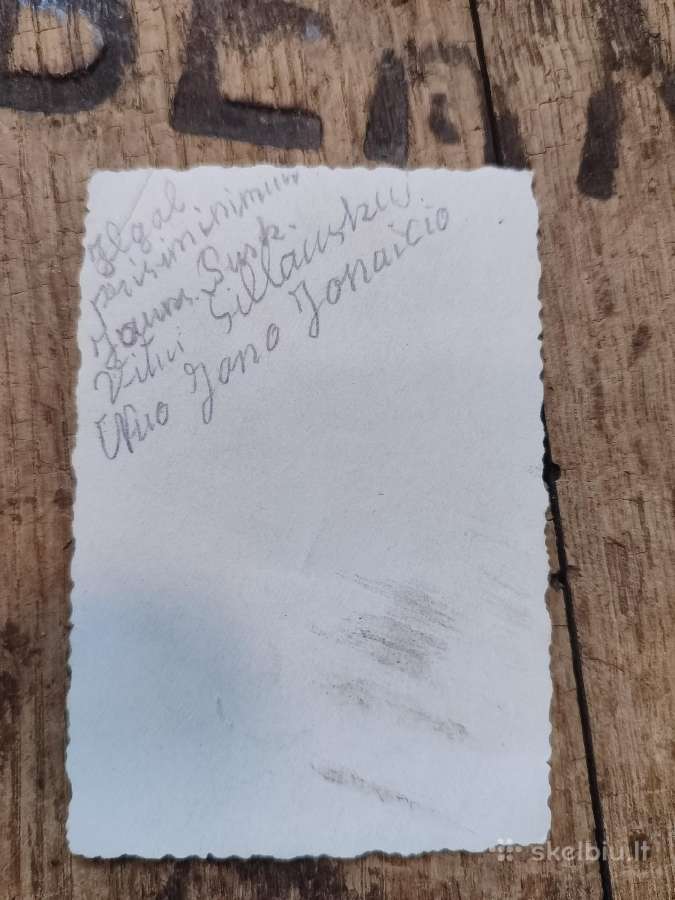 Ilgal.
prisiminimui
Jaun. Susk.
Vitui Šillauskui
Nuo Jono Jonaičio
skelbiu.lt